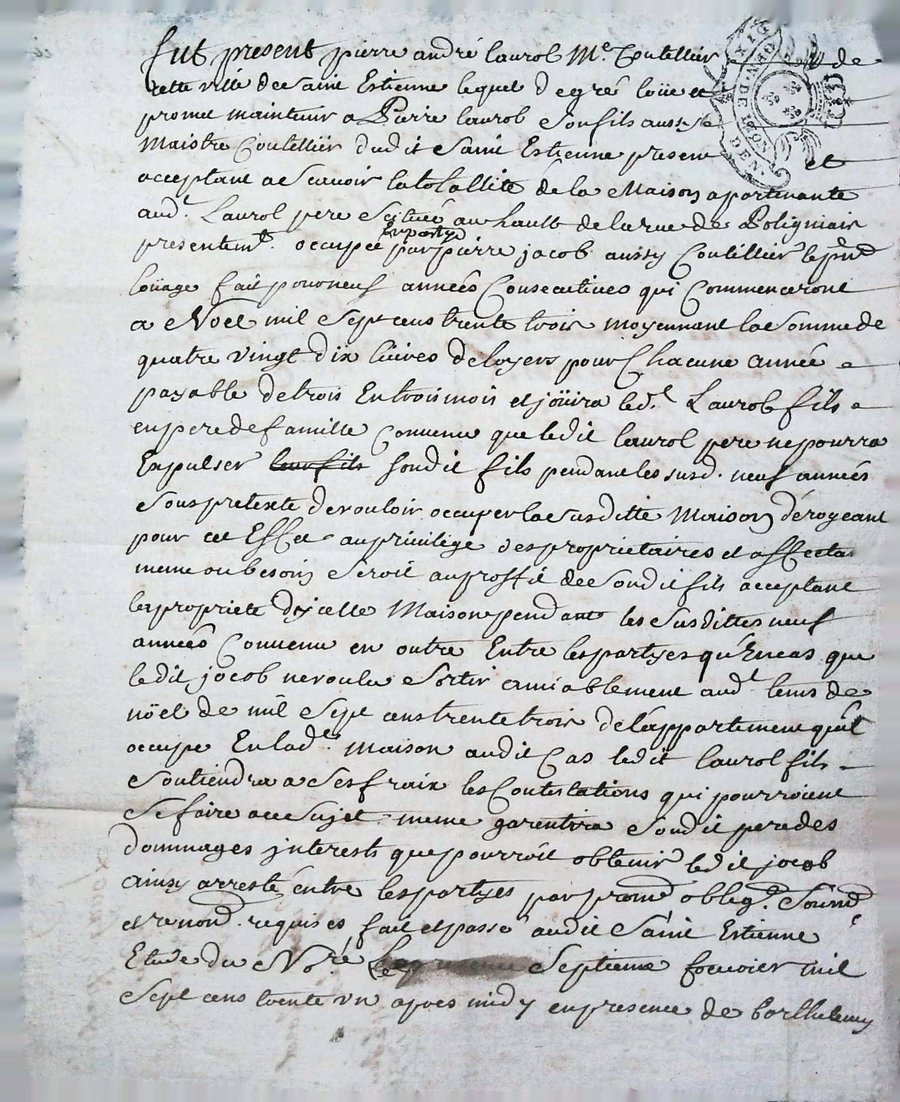 fut present pierre andré laurol Me. Coutellier de
cette ville de Saint Estienne lequel de gré loüe et
promet maintenir a Pierre laurol Son fils aussy
Maistre Coutellier dudit Saint Estienne present et
acceptant a Scavoir la totallité de la Maison apartenante
aud. Laurol pere Scituée au hault de la rue de Polignais
presentemt. occupée en partye par pierre jacob aussy Coutellier le pnt
loüage fait pour neuf années Consecutives qui Commenceront
a Noel mil Sept cens trente trois moyennant la Somme de
quatre vingt dix livres de loyers pour Chacune année
payable de trois En trois mois et joüira led. Laurol fils
en pere de famille Convenu que ledit laurol pere ne pourra
Expulser leur fils Sondit fils pendant les susd. neuf années
Sous pretexte de vouloir occuper la Susditte Maison dérogeant
pour cet Effet au privilige des proprietaires et affecta
meme au besoin Seroit au proffit de Sondit fils acceptant
la propriete d'ycelle Maison pendant les Susdittes neuf
années Convenu en outre Entre les partyes qu'En cas que
ledit jacob ne voulu Sortir amiablement aud. tems de
nöel de mil Sept cens trente trois de l'appartement qu'il
occupe En lad. Maison audit Cas ledit laurol fils
Soutiendra a Ses fraix les Contestations qui pourroient
Se faire a ce Sujet meme garentira Sondit pere des
dommages jnterests que pourroit obtenir ledit jacob
ainsy arresté entre les partyes par prom. obligº. Soumº
et renond. requises fait et passé audit Saint Estienne
Etude du Noré. Le Septieme fevrier mil
Sept cens trente un apres midy en presence de barthelemy
DIX DEN. NOMI DE GEN.